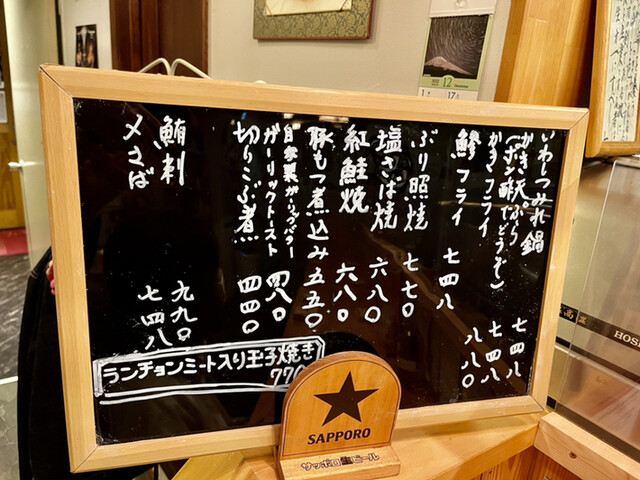 いわしつみれ鍋 七四八
かき天ぷら 七四八
(ポン酢でどうぞ)
かきフライ 八八〇
鯵フライ 七四八
ぶり照焼 七七〇
塩さば焼 六八〇
紅鮭焼 六八〇
豚もつ煮込み 五五〇
自家製ガーリックバター
ガーリックトースト 四八〇
切りこぶ煮 四四〇
鮪刺 九九〇
〆さば 七四八
ランチョンミート入り玉子焼き
770
SAPPORO
サッポロ生ビール
12
HOS